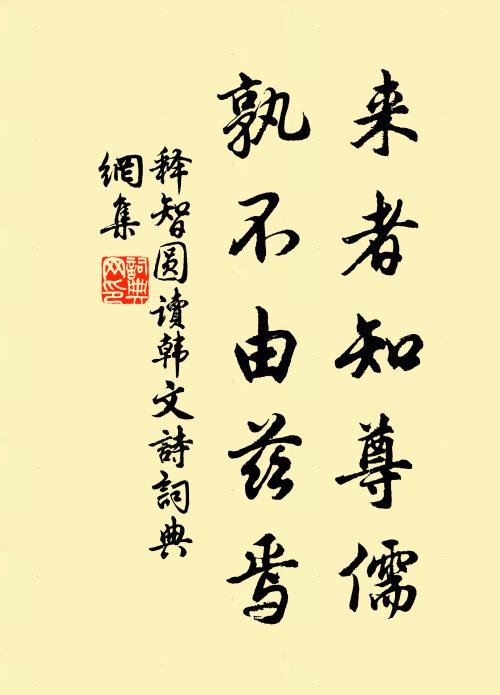 来者知尊儒
孰不由兹焉
释智圆读韩文詩詞典
網集
詞典网印